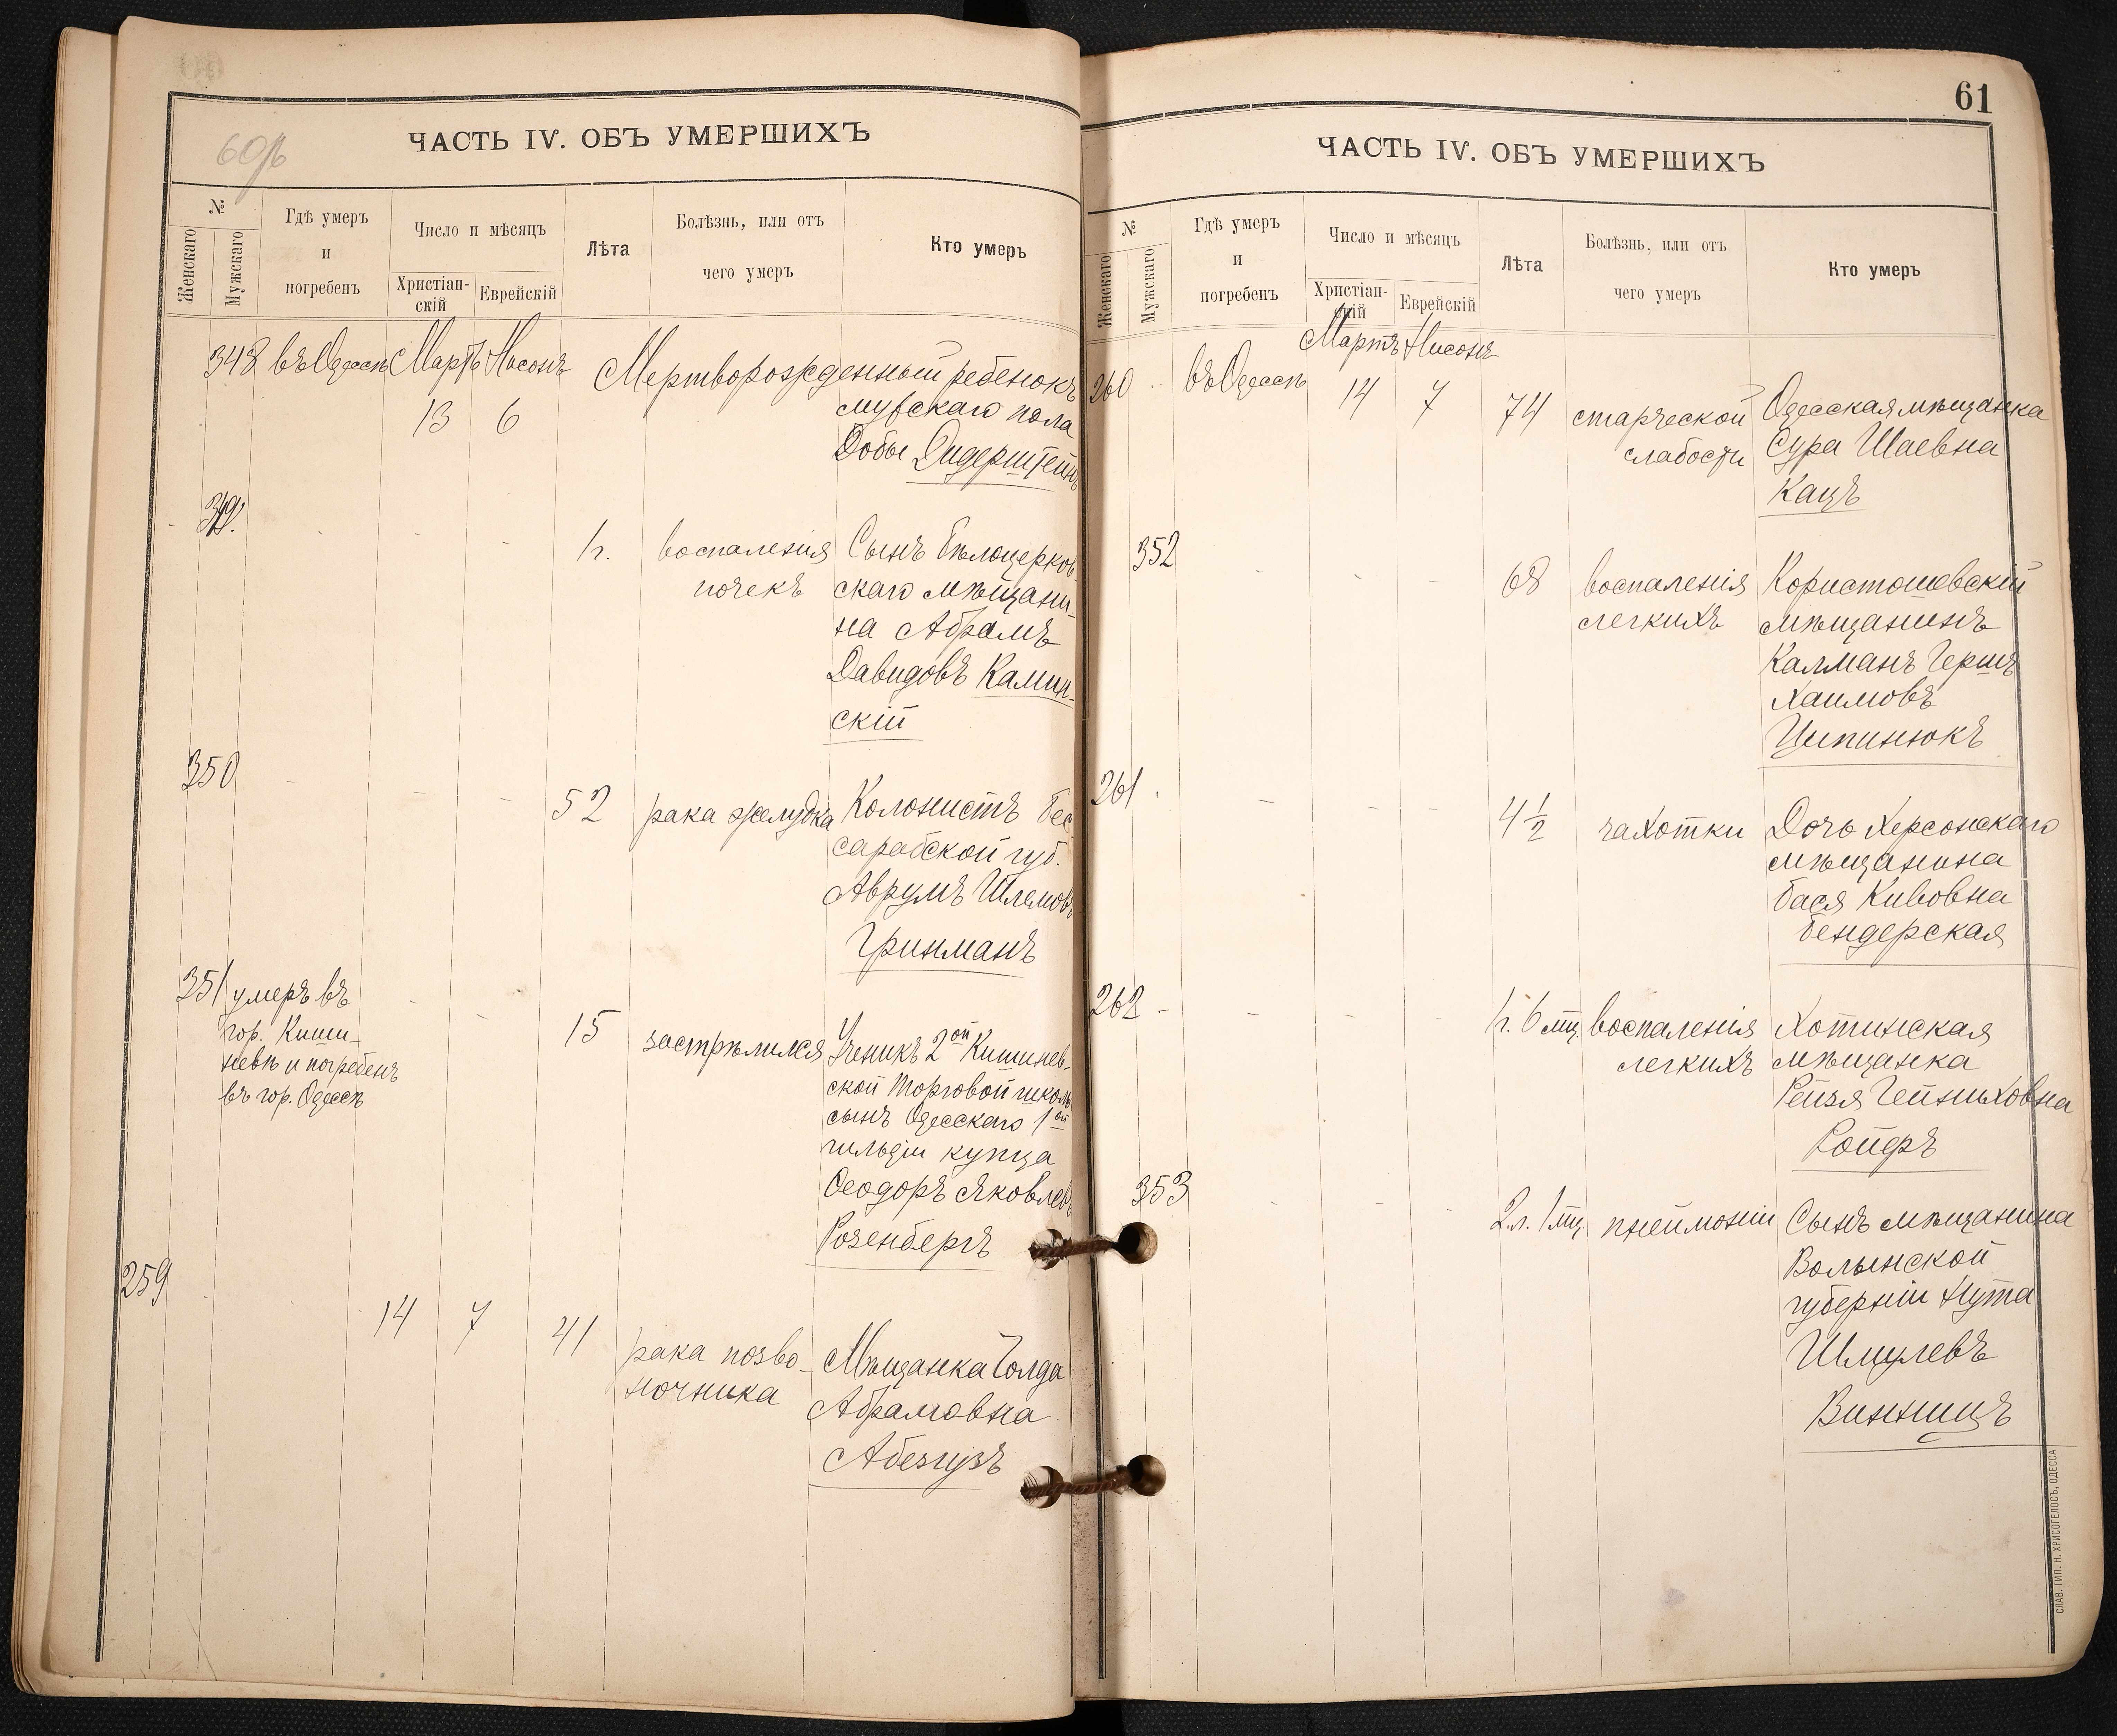 60об
ЧАСТЬ IV. ОБЪ УМЕРШИХЪ
№
Женскаго
Мужскаго
Гдѣ умеръ
и
погребенъ
Число и мѣсяцъ
Христіан-
скій
Еврейскій
Лѣта
Болѣзнь, или отъ
чего умеръ
Кто умеръ
348 въ Одессѣ Мартъ Нисонъ Мертворожденный ребенокъ
13 6 мужскаго пола
Добы Дидерштейнъ
349. - - - 1 г. воспаленія Сынъ Бѣлоцерков
почекъ скаго мѣщани-
на Абрамъ
Давидовъ Камин-
скій
350 - - - 52 рака желудка Колонистъ Бес
сарабской губ.
Аврумъ Шлемовъ
Гринманъ
351 умеръ въ - - 15 застрѣлился Ученикъ 2ой Кишинев-
гор. Киши-
невѣ и погребенъ ской Торговой школы
въ гор. Одессѣ сынъ Одесскаго 1ой
гильдіи купца
Ѳеодоръ Яковлевъ
Розенбергъ
259 - - 14 7 41 рака позво- Мѣщанка Голда
ночника Абрамовна
Абезгузъ
61
ЧАСТЬ IV. ОБЪ УМЕРШИХЪ
№
Женскаго
Мужскаго
Гдѣ умеръ
и
погребенъ
Число и мѣсяцъ
Христіан-
скій
Еврейскій
Лѣта
Болѣзнь, или отъ
чего умеръ
Кто умеръ
Мартъ Нисонъ
260 - въ Одессѣ 14 7 74 старческой Одесская мѣщанка
слабости Сура Шаевна
Кацъ
352 - - - 68 воспаленія Користошевскій
легкихъ мѣщанинъ
Калманъ Гершъ
Хаимовъ
Ципинюкъ
261 - - - - 4 1/2 чахотки Дочь Херсонскаго
мѣщанина
Бася Кивовна
Бендерская
262 - - - - 1 г. 6 мц. воспаленія Хотинская
легкихъ мѣщанка
Рейзя Гейниховна
Ройеръ
353 - - - 2 л. 1 мц. пнеймоніи Сынъ мѣщанина
Волынской
губерніи Нута
Шмулевъ
Винницъ
СЛАВ. ТИП. Н. ХРИСОГЕЛОСЪ, ОДЕССА